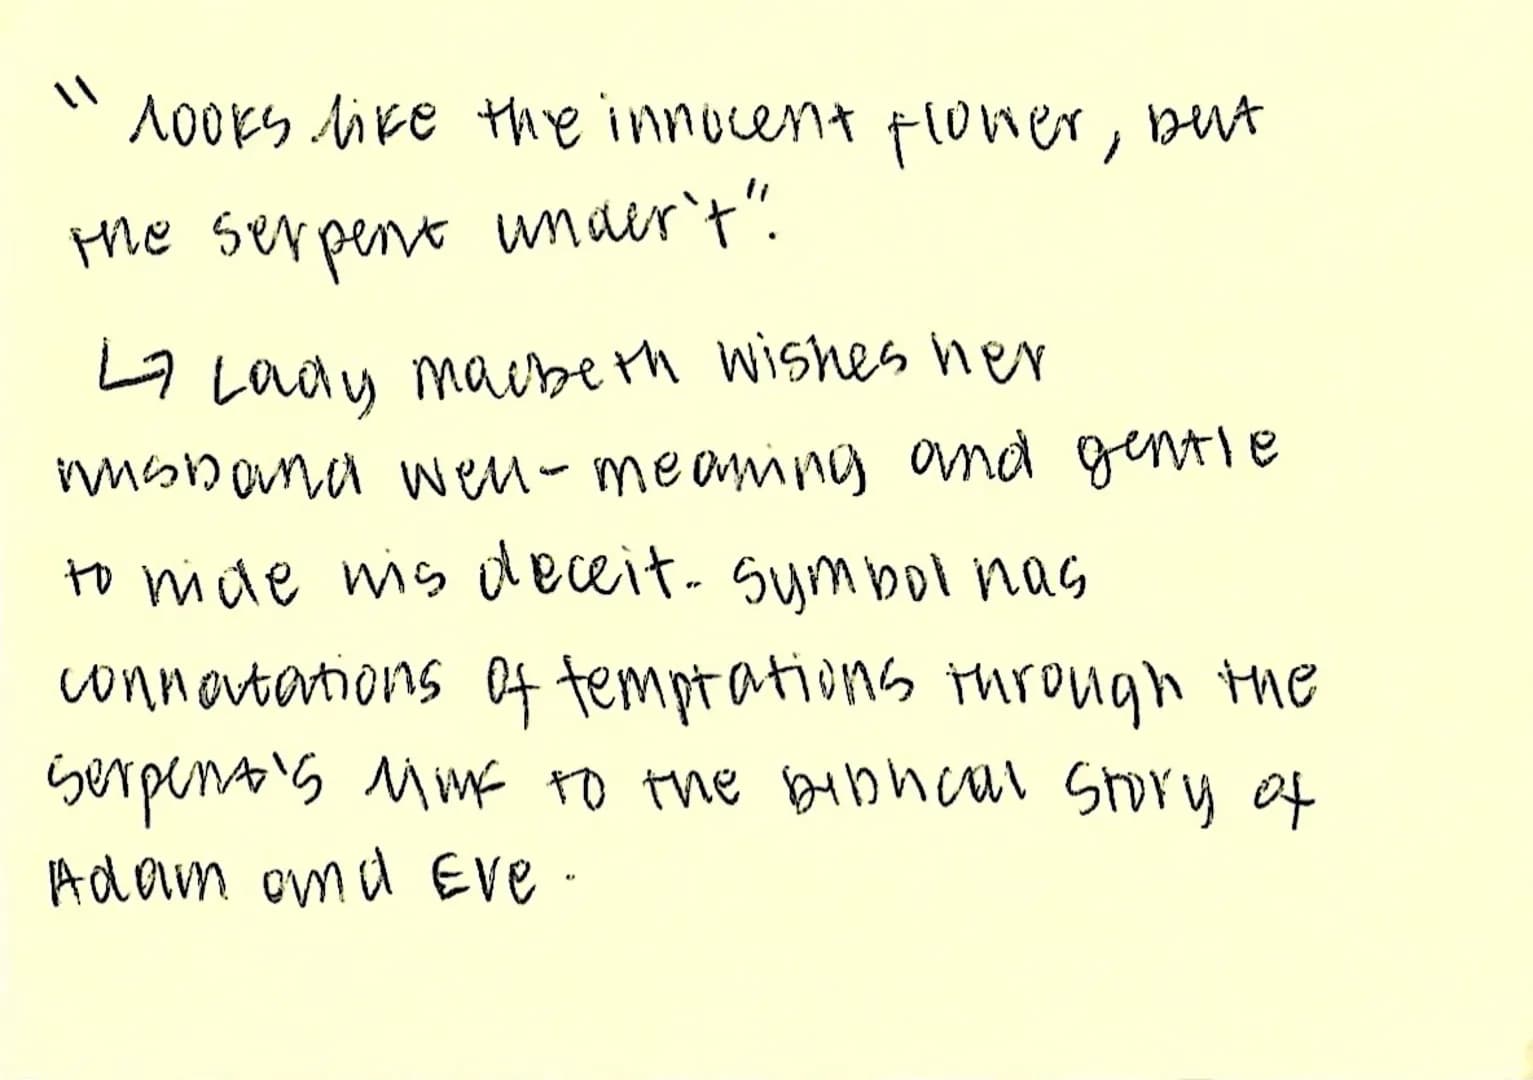 "looks like the innocent flower, but
the serpent under't".
↳ Lady macbeth wishes her
husband well-meaning and gentle
to hide his deceit. Symbol has
connatations of temptations through the
serpent's link to the biblical story of
Adam and Eve.